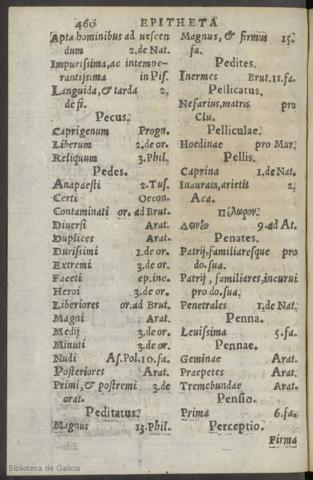 460 EPITHETA
Apta hominibus ad uescen
dum 2.de Nat.
Impurissima, ac intempe-
rantissima in Pis.
Languida, & tarda 2.
de fi.
Pecus.
Caprigenum Progn.
Liberum 2.de or.
Reliquum 3.Phil.
Pedes.
Anapaesti 2.Tus.
Certi Oecon.
Contaminati or.ad Brut.
Diuersi Arat.
Duplices Arat.
Durissimi 1.de or.
Extremi 3.de or.
Faceti ep.inc.
Heroi 3.de or.
Liberiores or.ad Brut.
Magni Arat.
Medij 3.de or.
Minuti 3.de or.
Nudi As.Pol.10.fa.
Posteriores Arat.
Primi, & postremi 3.de
orat.
Peditatus.
Magnus 13.Phil.
Magnus, & firmus 15.
fa.
Pedites.
Inermes Brut.11.fa.
Pellicatus.
Nefarius, matris pro
Clu.
Pelliculae.
Hoedinae pro Mur.
Pellis.
Caprina 1.de Nat.
Inaurata, arietis 2.
Aca.
Πέλωρον.
9.ad At.
Penates.
Patrij, familiaresque pro
do.sua.
Patrij, familiares, incurui
pro do.sua.
Penetrales 1.de Nat.
Penna.
Leuissima 5.fa.
Pennae.
Geminae Arat.
Praepetes Arat.
Tremebundae Arat.
Pensio.
Prima 6.fa.
Perceptio.
Firma
Biblioteca de Galicia